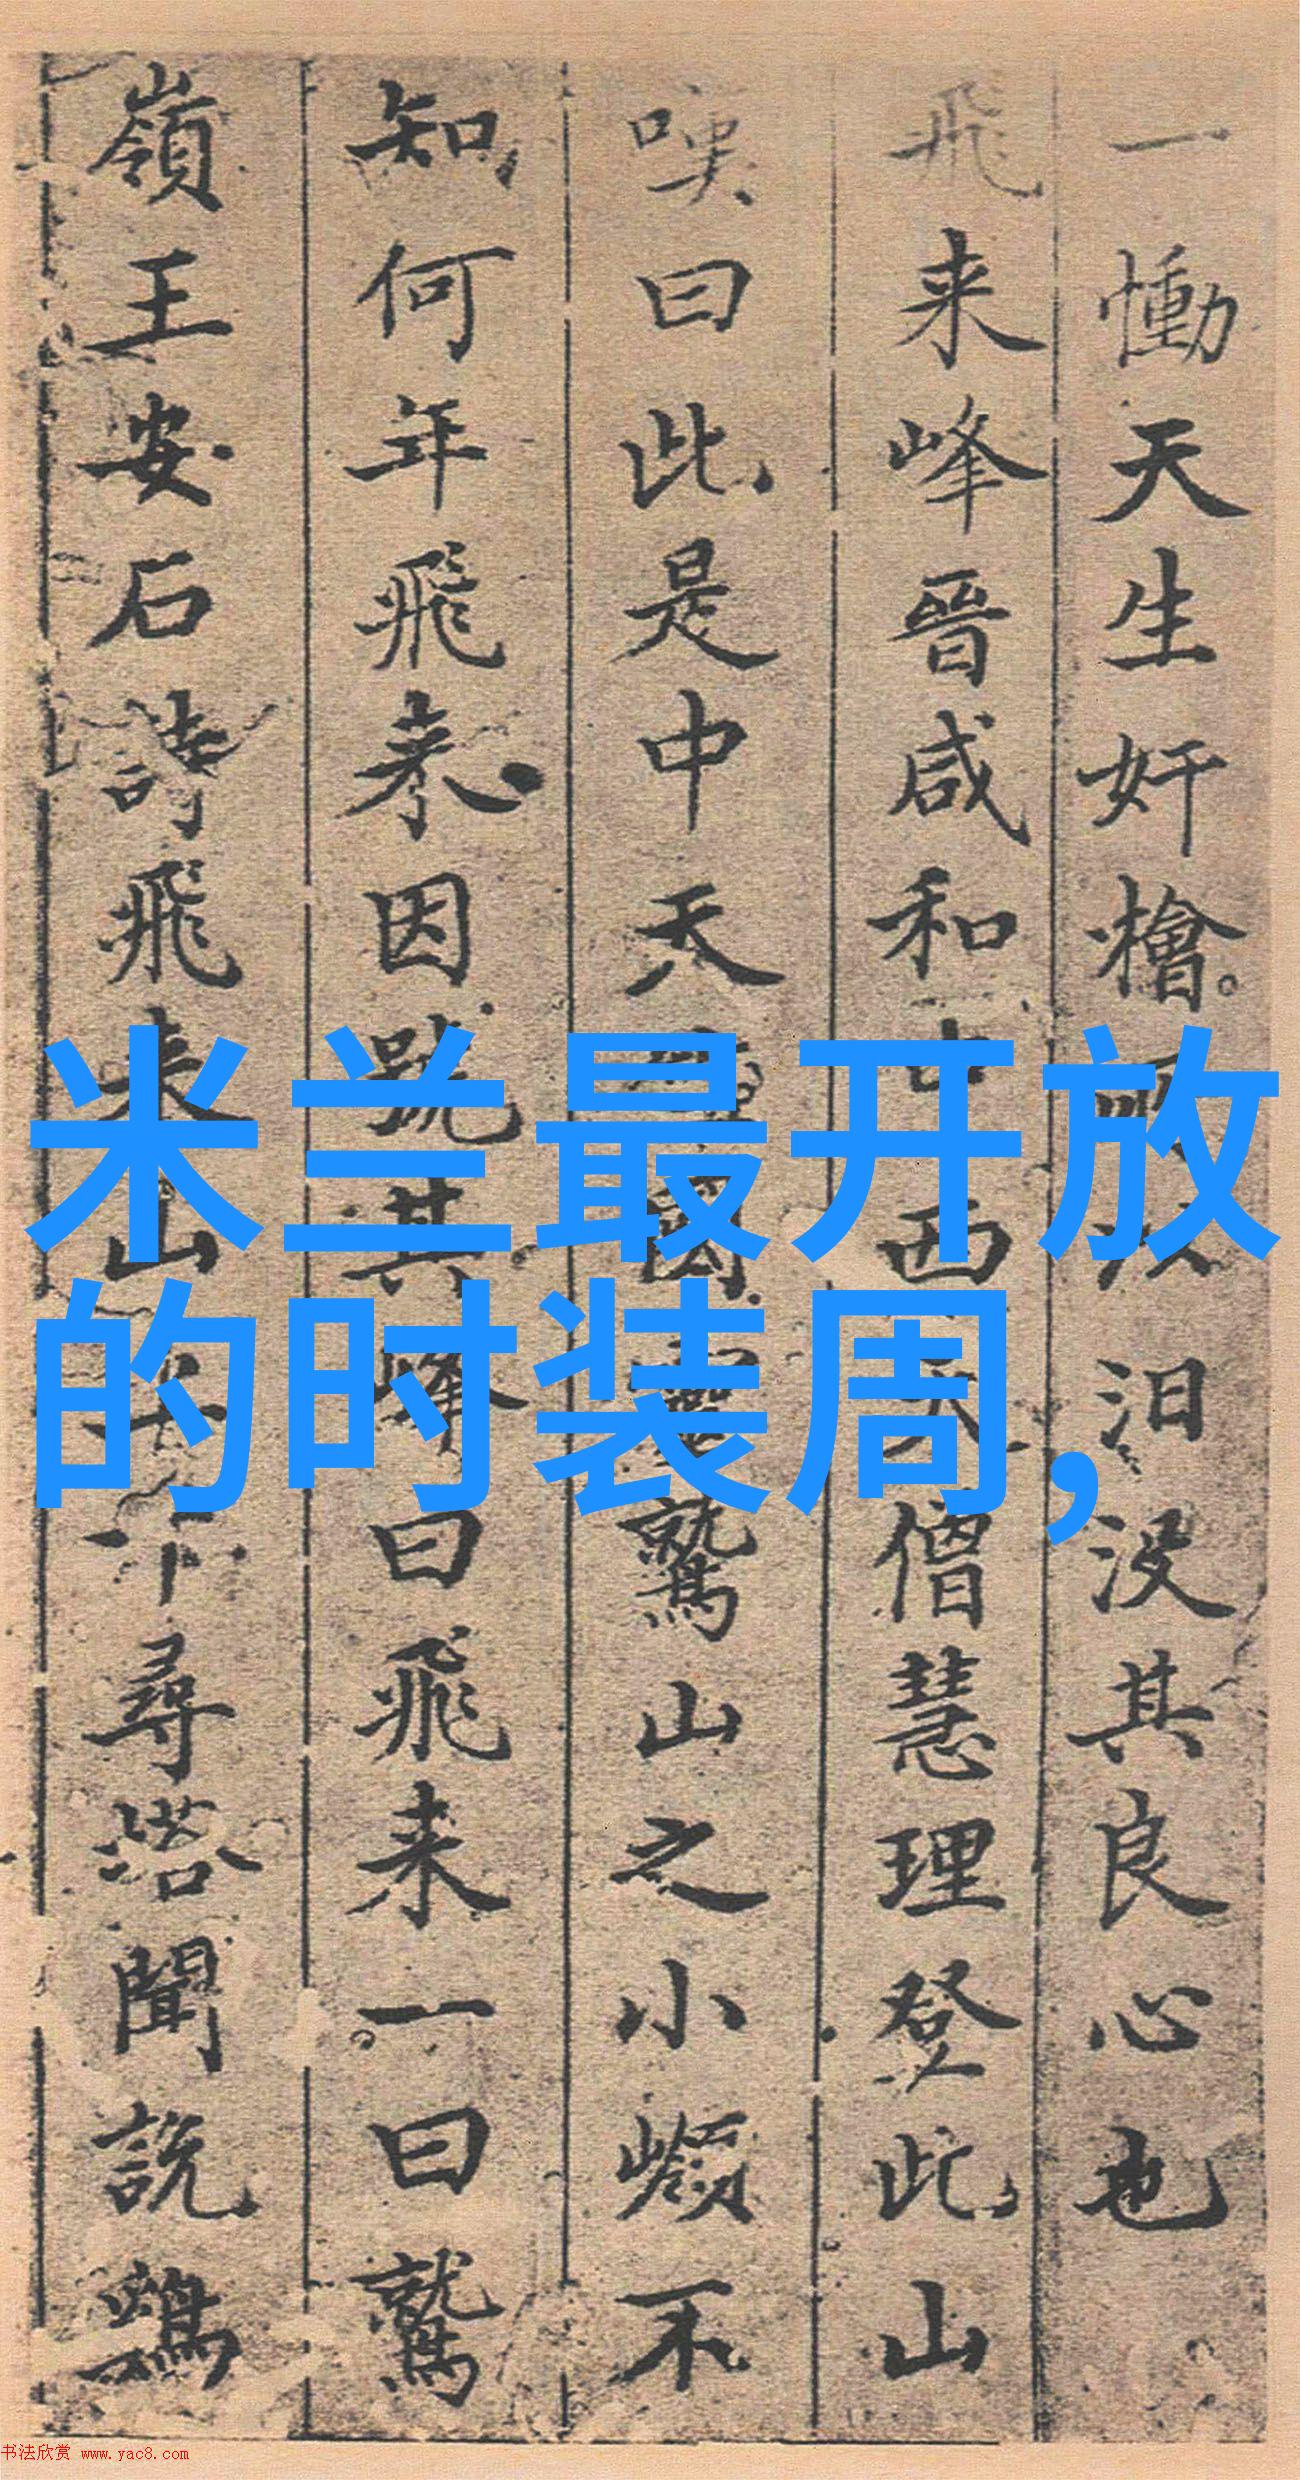 一慟天生奸檜
汨没其良心也
飛来峰晉咸和中西天僧慧理登此山
嘆曰此是中天
國靈鷲山之小嶺不
知何年飛来因號其峰曰飛来一曰鷲
嶺王安石詩飛来山上千尋塔聞說鷄
米兰最开放
的时装周，
书法欣赏 www.yac8.com